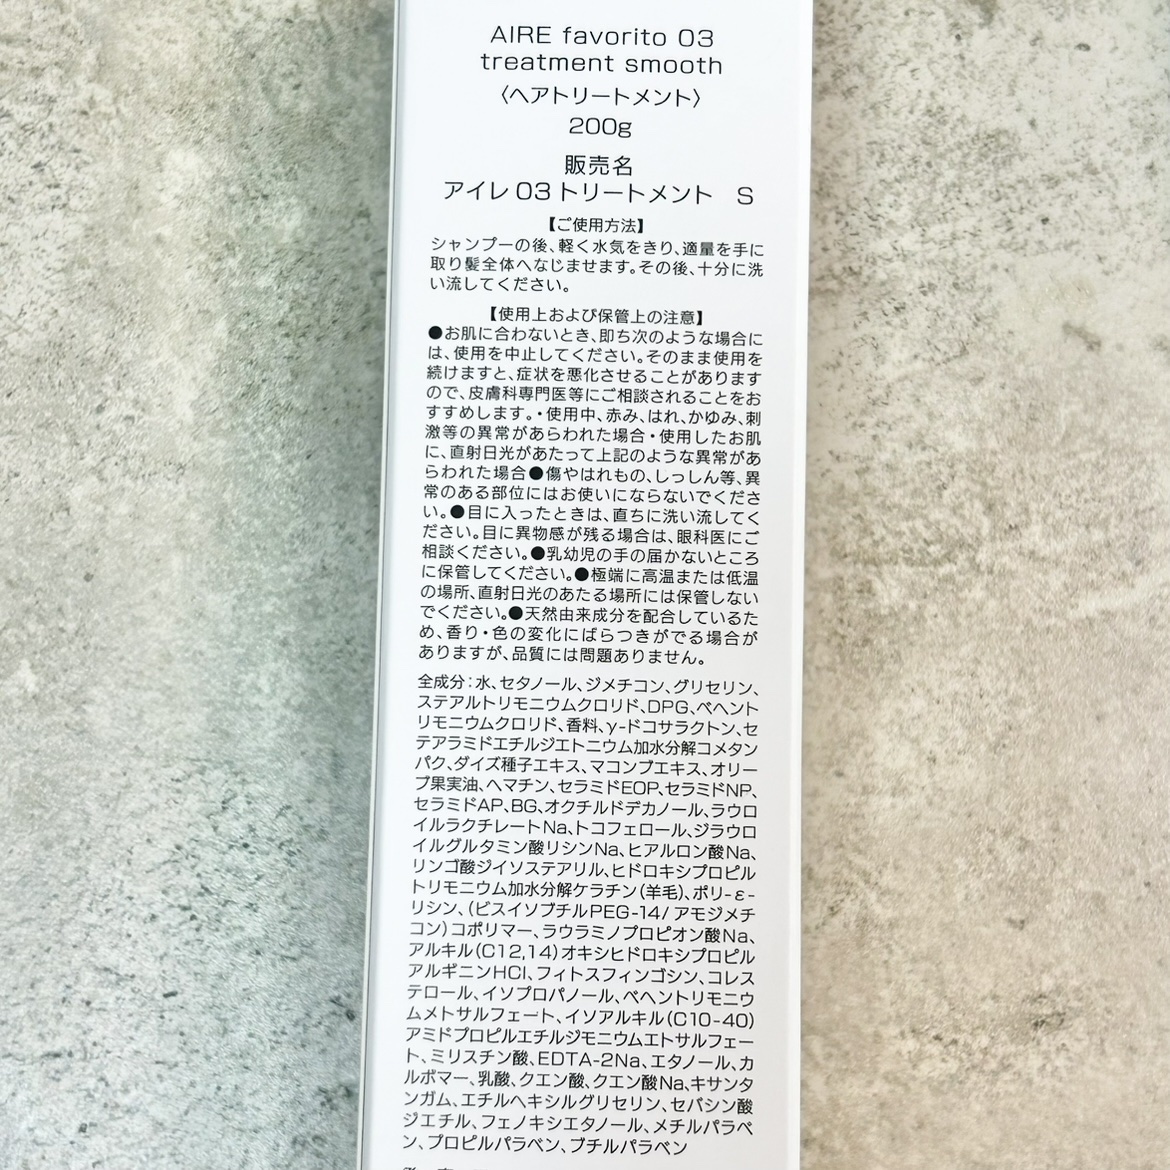 AIRE favorito 03
treatment smooth
〈ヘアトリートメント〉
200g
販売名
アイレ 03 トリートメント　S
【ご使用方法】
シャンプーの後、軽く水気をきり、適量を手に
取り髪全体へなじませます。その後、十分に洗
い流してください。
【使用上および保管上の注意】
●お肌に合わないとき、即ち次のような場合に
は、使用を中止してください。そのまま使用を
続けますと、症状を悪化させることがあります
ので、皮膚科専門医等にご相談されることをお
すすめします。・使用中、赤み、はれ、かゆみ、刺
激等の異常があらわれた場合・使用したお肌
に、直射日光があたって上記のような異常があ
らわれた場合●傷やはれもの、しっしん等、異
常のある部位にはお使いにならないでくださ
い。●目に入ったときは、直ちに洗い流してく
ださい。目に異物感が残る場合は、眼科医にご
相談ください。●乳幼児の手の届かないところ
に保管してください。●極端に高温または低温
の場所、直射日光のあたる場所には保管しない
でください。●天然由来成分を配合しているた
め、香り・色の変化にばらつきがでる場合が
ありますが、品質には問題ありません。
全成分：水、セタノール、ジメチコン、グリセリン、
ステアルトリモニウムクロリド、DPG、ベヘント
リモニウムクロリド、香料、γ-ドコサラクトン、セ
テアラミドエチルジエトニウム加水分解コメタン
パク、ダイズ種子エキス、マコンブエキス、オリー
ブ果実油、ヘマチン、セラミドEOP、セラミドNP、
セラミドAP、BG、オクチルドデカノール、ラウロ
イルラクチレートNa、トコフェロール、ジラウロ
イルグルタミン酸リシンNa、ヒアルロン酸Na、
リンゴ酸ジイソステアリル、ヒドロキシプロピル
トリモニウム加水分解ケラチン（羊毛）、ポリ-ε-
リシン、（ビスイソブチルPEG-14/アモジメチ
コン）コポリマー、ラウラミノプロピオン酸Na、
アルキル（C12,14）オキシヒドロキシプロピル
アルギニンHCl、フィトスフィンゴシン、コレス
テロール、イソプロパノール、ベヘントリモニウ
ムメトサルフェート、イソアルキル（C10-40）
アミドプロピルエチルジモニウムエトサルフェー
ト、ミリスチン酸、EDTA-2Na、エタノール、カ
ルボマー、乳酸、クエン酸、クエン酸Na、キサンタ
ンガム、エチルヘキシルグリセリン、セバシン酸
ジエチル、フェノキシエタノール、メチルパラベ
ン、プロピルパラベン、ブチルパラベン